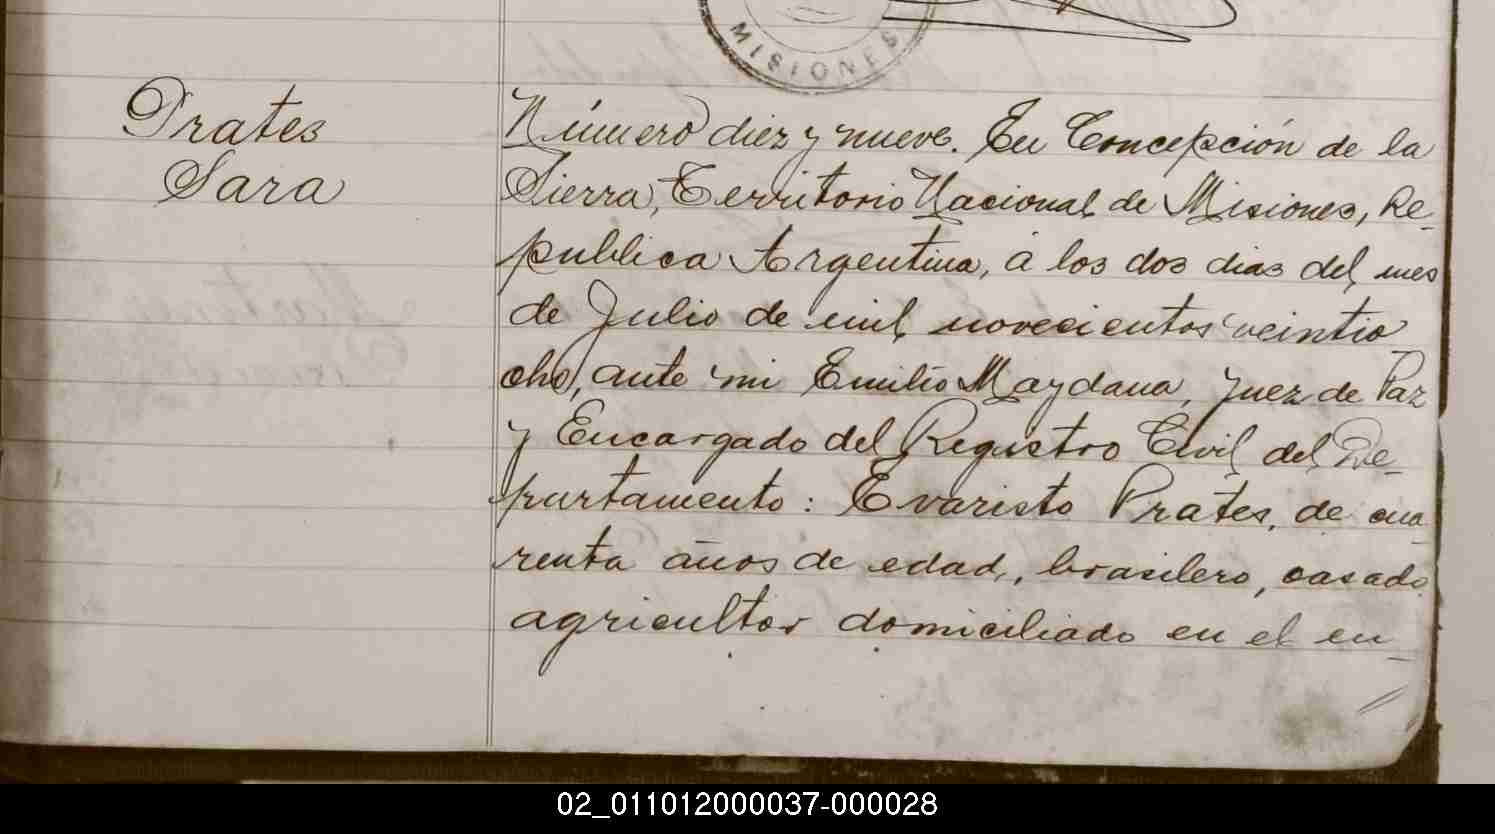 MISIONES
Prates
Sara
Número diez y nueve. En Concepción de la
Sierra, Territorio Nacional de Misiones, Re-
publica Argentina, á los dos dias del mes
de Julio de mil novecientos veintio
cho, ante mi Emilio Maydana, Juez de Paz
y Encargado del Registro Civil del De-
partamento: Evaristo Prates, de cua
renta años de edad, brasilero, casado
agricultor domiciliado en el en-
02_011012000037-000028